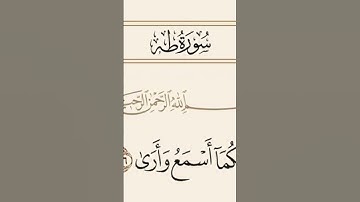 سُورَةُ طه
ـمِ ٱللَّهِ ٱلرَّحْمَٰنِ ٱلرَّحِيـ
كُمَآ أَسْمَعُ وَأَرَىٰ